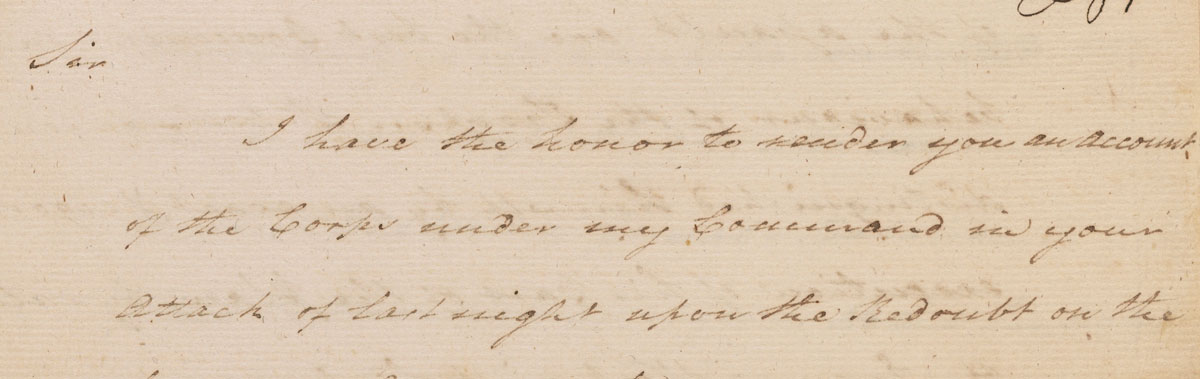 Sir
I have the honor to render you an account
of the Corps under my Command in your
Attack of last night upon the Redoubt on the